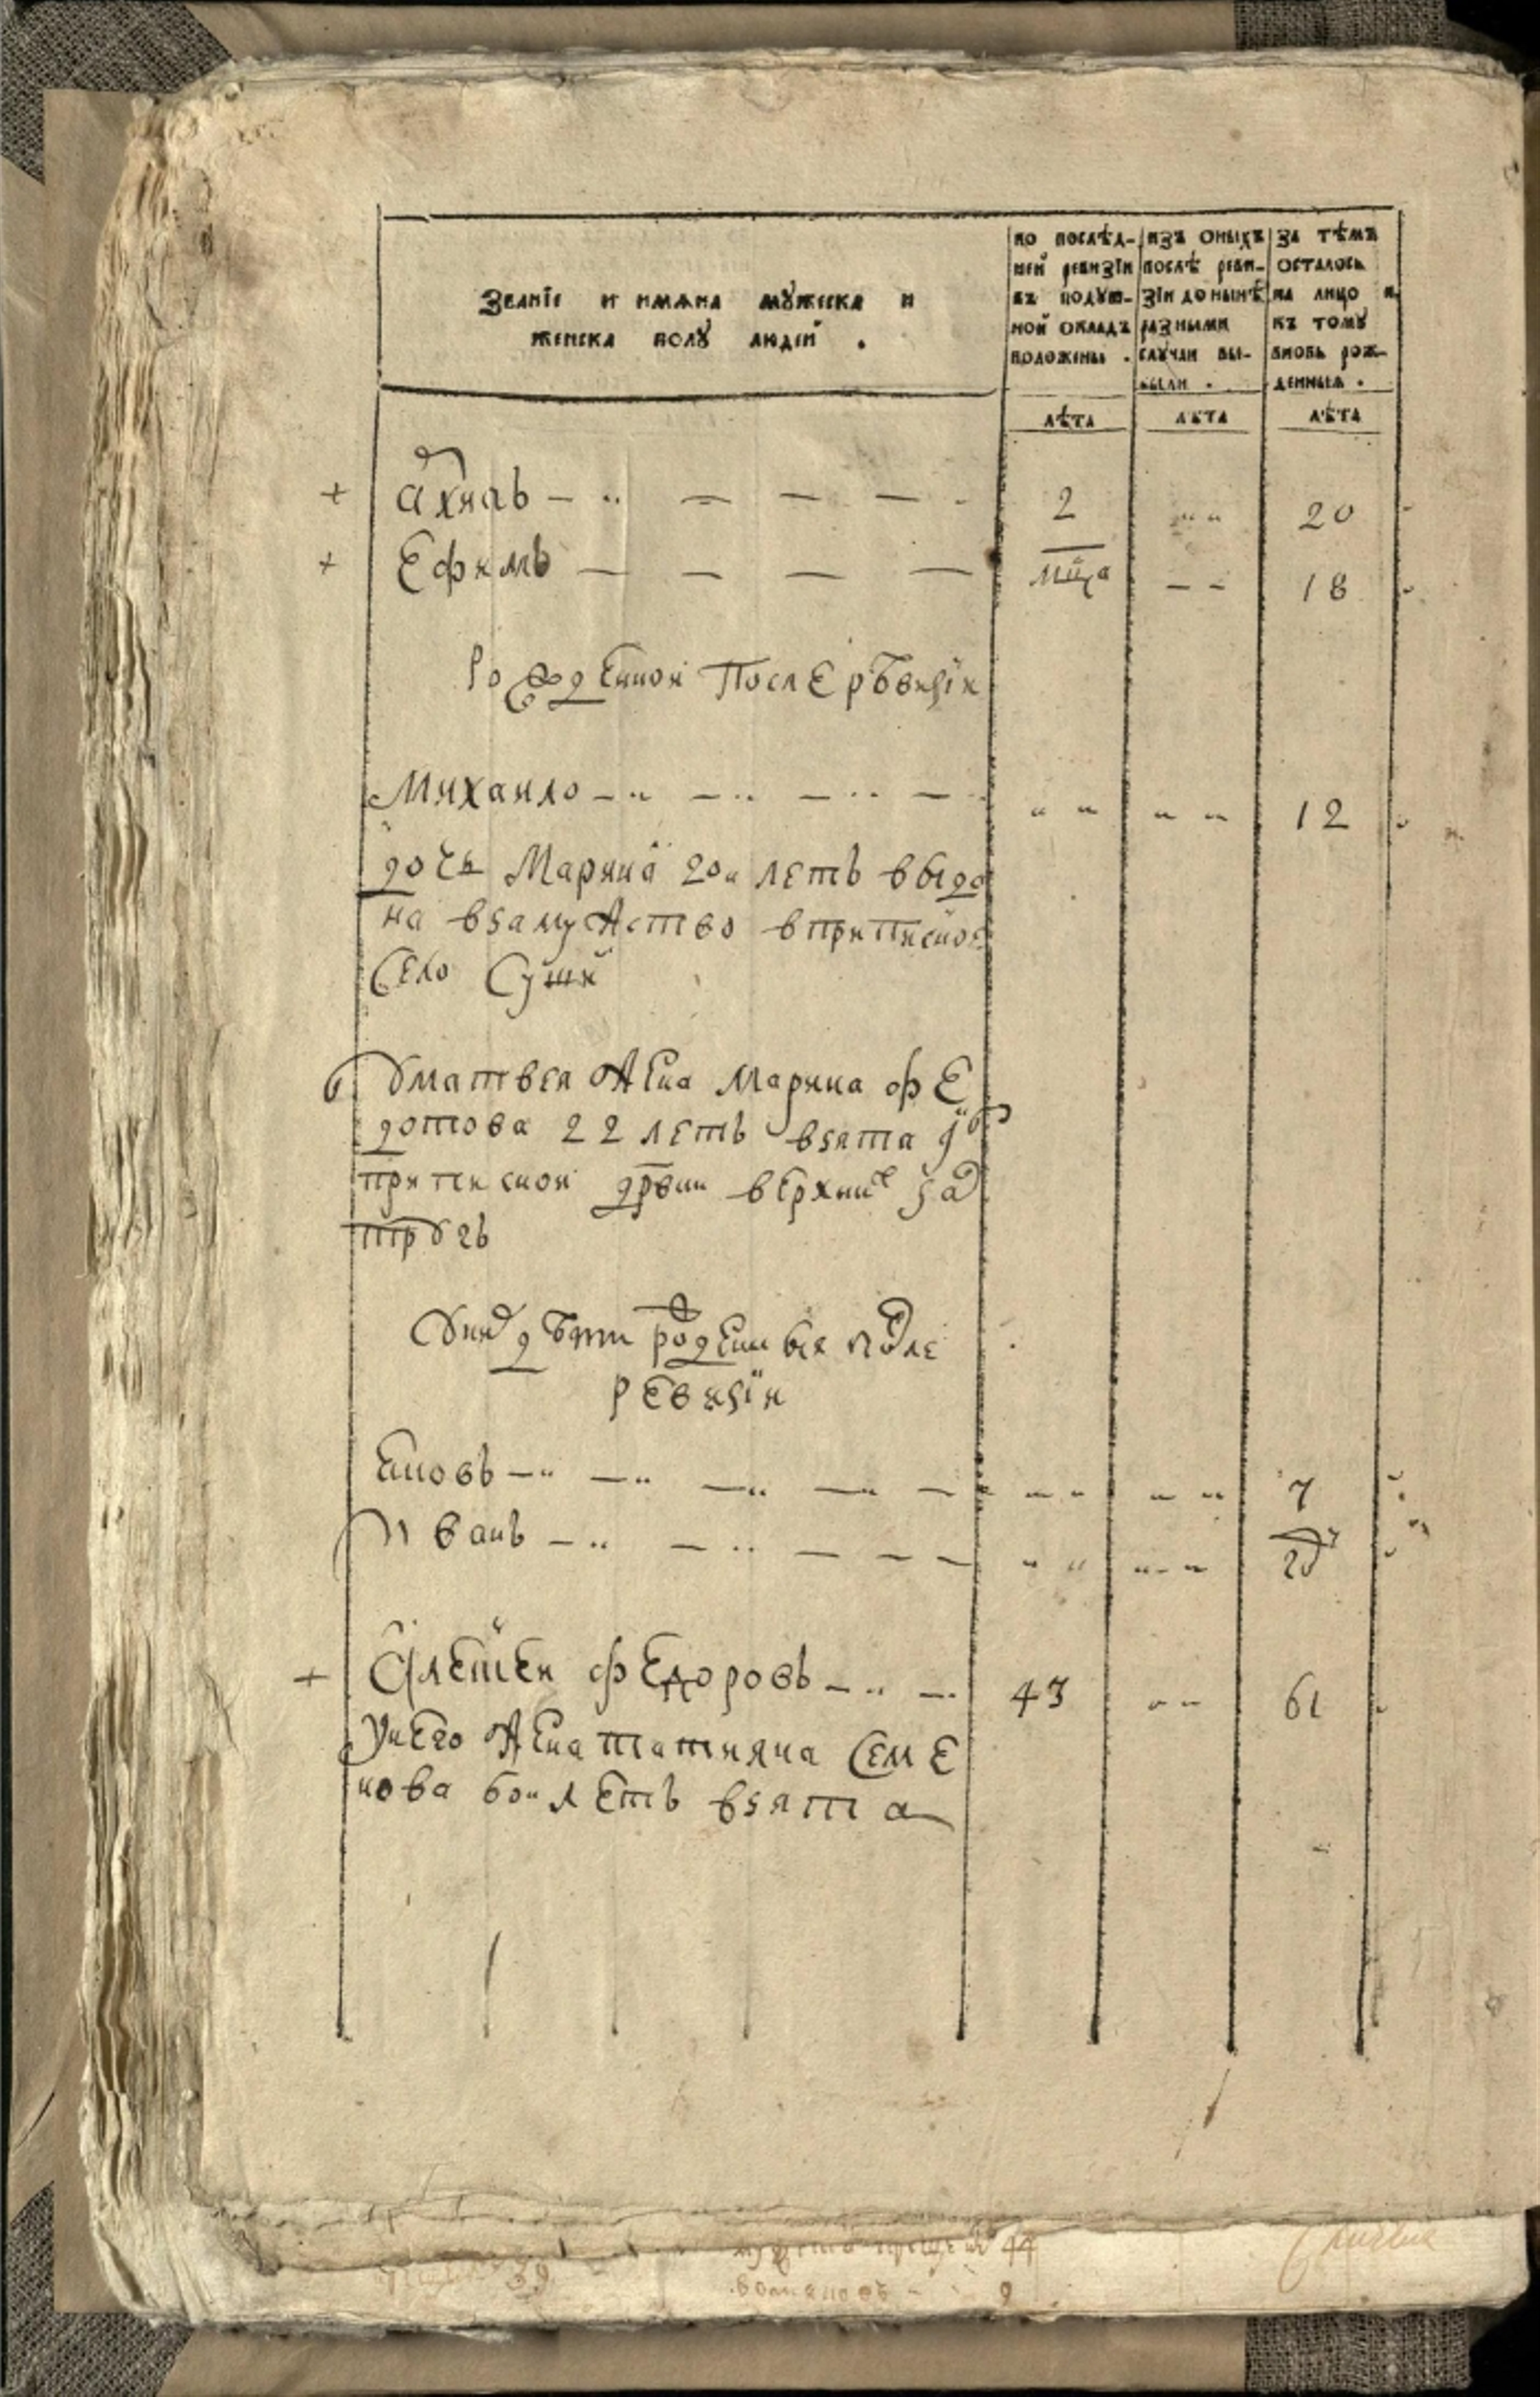 Званїе и имѧна мꙋжеска и
женска полꙋ людей .
по послѣд-
ней ревизїи
въ подꙋш-
ной окладъ
положены .
изъ оныхъ
послѣ реви-
зїи до нынѣ
разными
слꙋчаи вы-
были .
за тѣмъ
осталось
на лицо и
къ томꙋ
вновь рож-
денныя .
лѣта лѣта лѣта
+ 2 20
+ Ефимъ мⷭ҇ца 18
рожденной после рѣвизїи
Михаило 12
дочь Марина 20и летъ выда
на взамужство вприписное
село
ꙋматвея жена Марина фе
дотова 22 летъ взята
приписной дрвни верхниⷯ
ꙋниⷯ дѣти рожденныя после
ревизїи
Иванъ гоⷣ
7
+ Алеѯеи федоровъ 43 61
унего жена татияна семе
нова 60и летъ взята
44
9
39